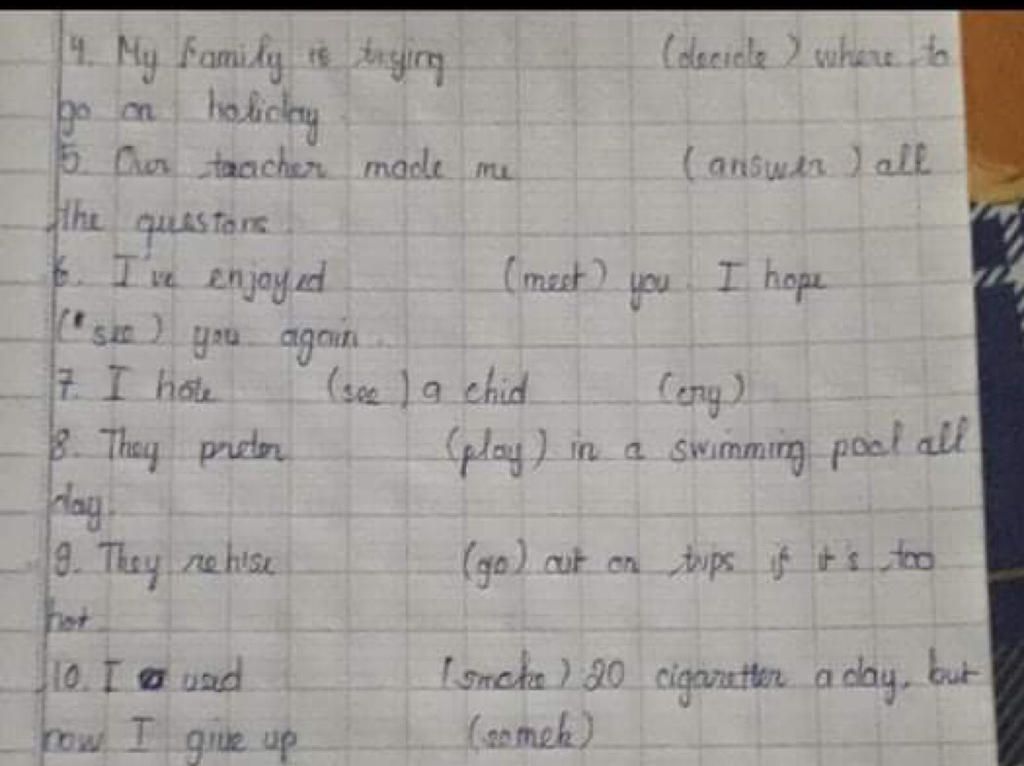 4. My family is trying (decide) where to
go on holiday
5. Our teacher made me (answer) all
the questons
6. I've enjoyed (meet) you. I hope
(see) you again.
7. I hate (see) a chid (cry)
8. They prefer (play) in a swimming pool all
day.
9. They (go) out on trips if it's too
hot
10. I used (smoke) 20 a day, but
now I give up (someh)